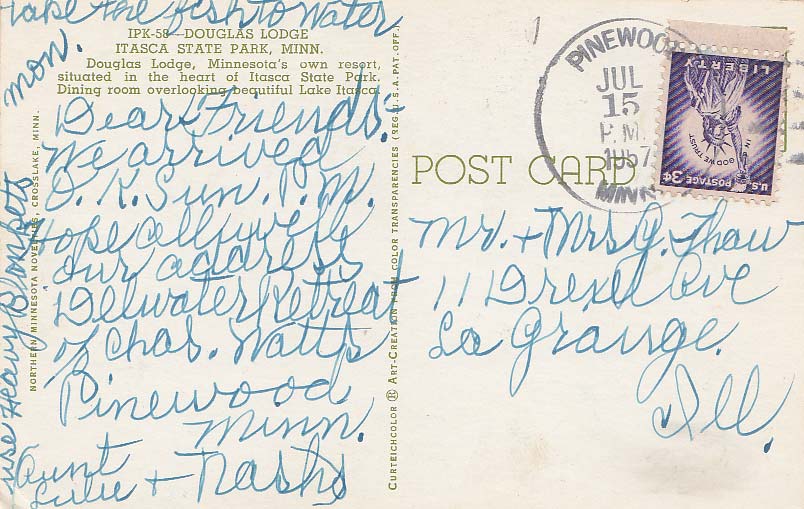 take the fish to water
IPK-58—DOUGLAS LODGE
ITASCA STATE PARK, MINN.
Douglas Lodge, Minnesota's own resort,
situated in the heart of Itasca State Park.
Dining room overlooking beautiful Lake Itasca.
mon.
Dear Friends:-
We arrived
O.K. Sun. P.M.
Hope all well
Our address
Deewater Retreat
% Chas. Watts
Pinewood
Minn.
Aunt
Lulu + Nashs
use Heavy Blankets
NORTHERN MINNESOTA NOVELTIES, CROSSLAKE, MINN.
CURTEICHCOLOR ® ART-CREATION FROM COLOR TRANSPARENCIES (REG. U.S.A. PAT. OFF.)
POST CARD
PINEWOOD
JUL
15
P.M.
1957
MINN
LIBERTY
IN GOD WE TRUST
U.S. POSTAGE 3¢
Mr. + Mrs G. Thaw
11 Drexel Ave
La Grange.
Ill.